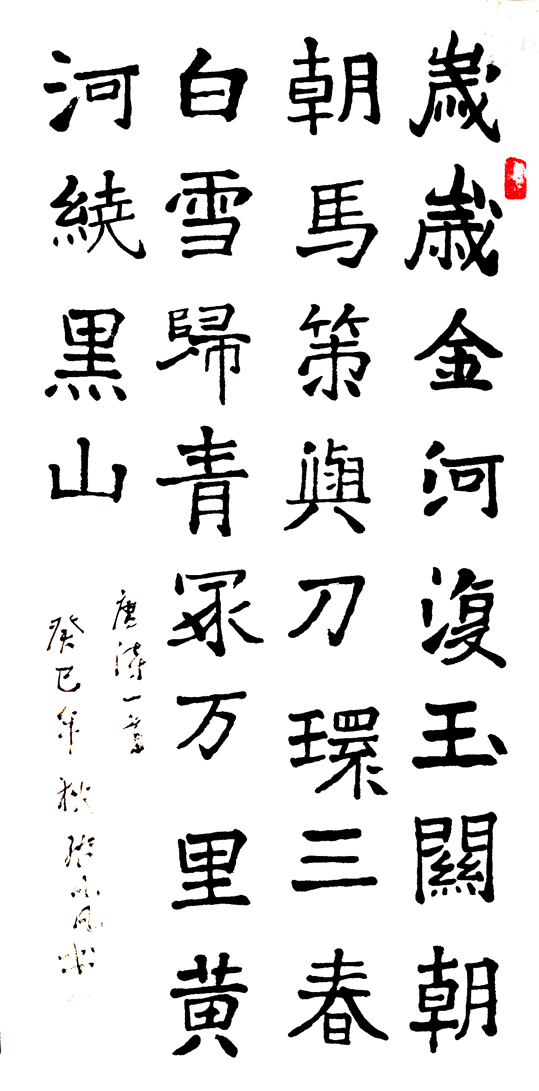 歲歲金河復玉關朝
朝馬策與刀環三春
白雪歸青冢万里黄
河繞黑山
唐詩一首
癸巳年秋